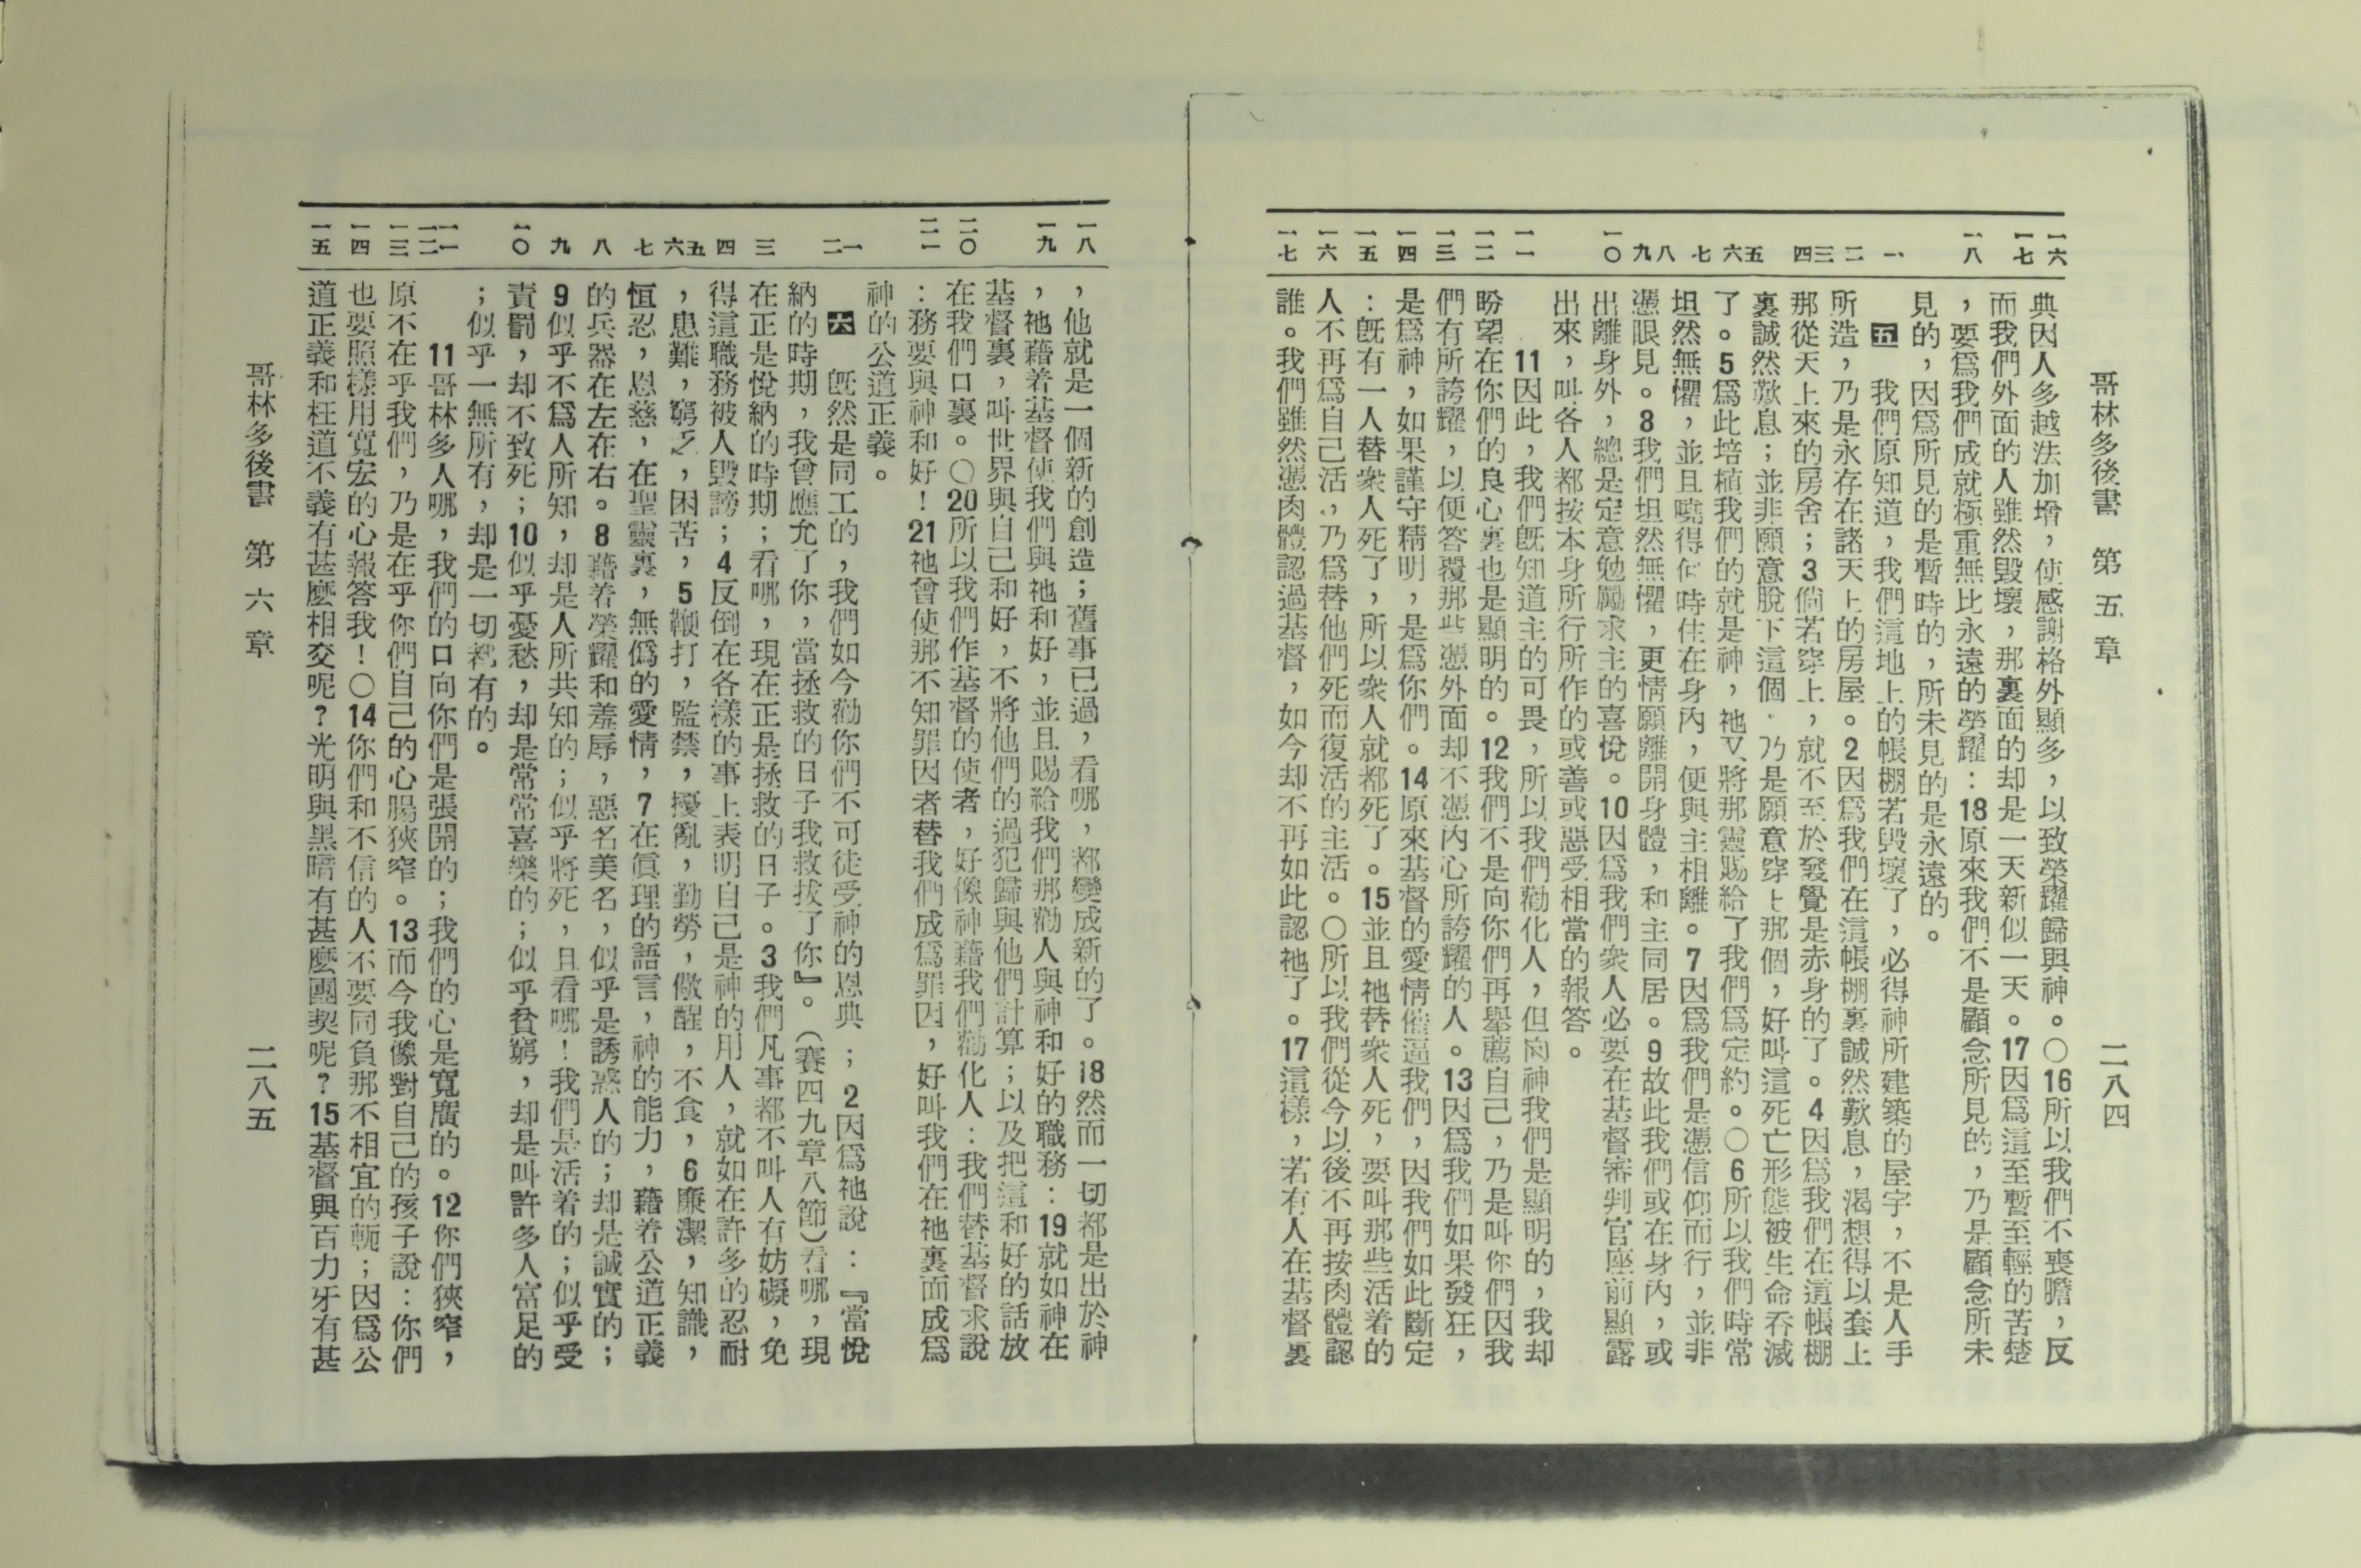 哥林多後書　第五章　二八四
一六
一七
一八
一
二
三
四
五
六
七
八
九
一〇
一一
一二
一三
一四
一五
一六
一七
典因人多越法加增，使感謝格外顯多，以致榮耀歸與神。〇16所以我們不喪膽，反
而我們外面的人雖然毀壞，那裏面的却是一天新似一天。17因爲這至暫至輕的苦楚
，要爲我們成就極重無比永遠的榮耀：18原來我們不是顧念所見的，乃是顧念所未
見的，因爲所見的是暫時的，所未見的是永遠的。
五　我們原知道，我們這地上的帳棚若毀壞了，必得神所建築的屋宇，不是人手
所造，乃是永存在諸天上的房屋。2因爲我們在這帳棚裏誠然歎息，渴想得以套上
那從天上來的房舍；3倘若穿上，就不至於發覺是赤身的了。4因爲我們在這帳棚
裏誠然歎息；並非願意脫下這個，乃是願意穿上那個，好叫這死亡形態被生命吞滅
了。5爲此培植我們的就是神，祂又將那靈賜給了我們爲定約。〇6所以我們時常
坦然無懼，並且曉得何時住在身內，便與主相離。7因爲我們是憑信仰而行，並非
憑眼見。8我們坦然無懼，更情願離開身體，和主同居。9故此我們或在身內，或
出離身外，總是定意勉勵求主的喜悅。10因爲我們衆人必要在基督審判官座前顯露
出來，叫各人都按本身所行所作的或善或惡受相當的報答。
11因此，我們既知道主的可畏，所以我們勸化人，但向神我們是顯明的，我却
盼望在你們的良心裏也是顯明的。12我們不是向你們再舉薦自己，乃是叫你們因我
們有所誇耀，以便答覆那些憑外面却不憑內心所誇耀的人。13因爲我們如果發狂，
是爲神，如果謹守精明，是爲你們。14原來基督的愛情催逼我們，因我們如此斷定
：既有一人替衆人死了，所以衆人就都死了。15並且祂替衆人死，要叫那些活着的
人不再爲自己活，乃爲替他們死而復活的主活。〇所以我們從今以後不再按肉體認
誰。我們雖然憑肉體認過基督，如今却不再如此認祂了。17這樣，若有人在基督裏
一八
一九
二〇
二一
一
二
三
四
五
六
七
八
九
一〇
一一
一二
一三
一四
一五
，他就是一個新的創造；舊事已過，看哪，都變成新的了。18然而一切都是出於神
，祂藉着基督使我們與祂和好，並且賜給我們那勸人與神和好的職務：19就如神在
基督裏，叫世界與自己和好，不將他們的過犯歸與他們計算；以及把這和好的話放
在我們口裏。〇20所以我們作基督的使者，好像神藉我們勸化人：我們替基督求說
：務要與神和好！21祂曾使那不知罪因者替我們成爲罪因，好叫我們在祂裏面成爲
神的公道正義。
六　既然是同工的，我們如今勸你們不可徒受神的恩典；2因爲祂說：『當悅
納的時期，我曾應允了你，當拯救的日子我救拔了你』。（賽四九章八節）看哪，現
在正是悅納的時期；看哪，現在正是拯救的日子。3我們凡事都不叫人有妨礙，免
得這職務被人毀謗；4反倒在各樣的事上表明自己是神的用人，就如在許多的忍耐
，患難，窮乏，困苦，5鞭打，監禁，擾亂，勤勞，儆醒，不食，6廉潔，知識，
恒忍，恩慈，在聖靈裏，無僞的愛情，7在眞理的語言，神的能力，藉着公道正義
的兵器在左在右。8藉着榮耀和羞辱，惡名美名，似乎是誘惑人的；却是誠實的；
9似乎不爲人所知，却是人所共知的；似乎將死，且看哪！我們是活着的；似乎受
責罰，却不致死；10似乎憂愁，却是常常喜樂的；似乎貧窮，却是叫許多人富足的
；似乎一無所有，却是一切都有的。
11哥林多人哪，我們的口向你們是張開的；我們的心是寬廣的。12你們狹窄，
原不在乎我們，乃是在乎你們自己的心腸狹窄。13而今我像對自己的孩子說：你們
也要照樣用寬宏的心報答我！〇14你們和不信的人不要同負那不相宜的軛；因爲公
道正義和枉道不義有甚麽相交呢？光明與黑暗有甚麽團契呢？15基督與百力牙有甚
哥林多後書　第六章　二八五